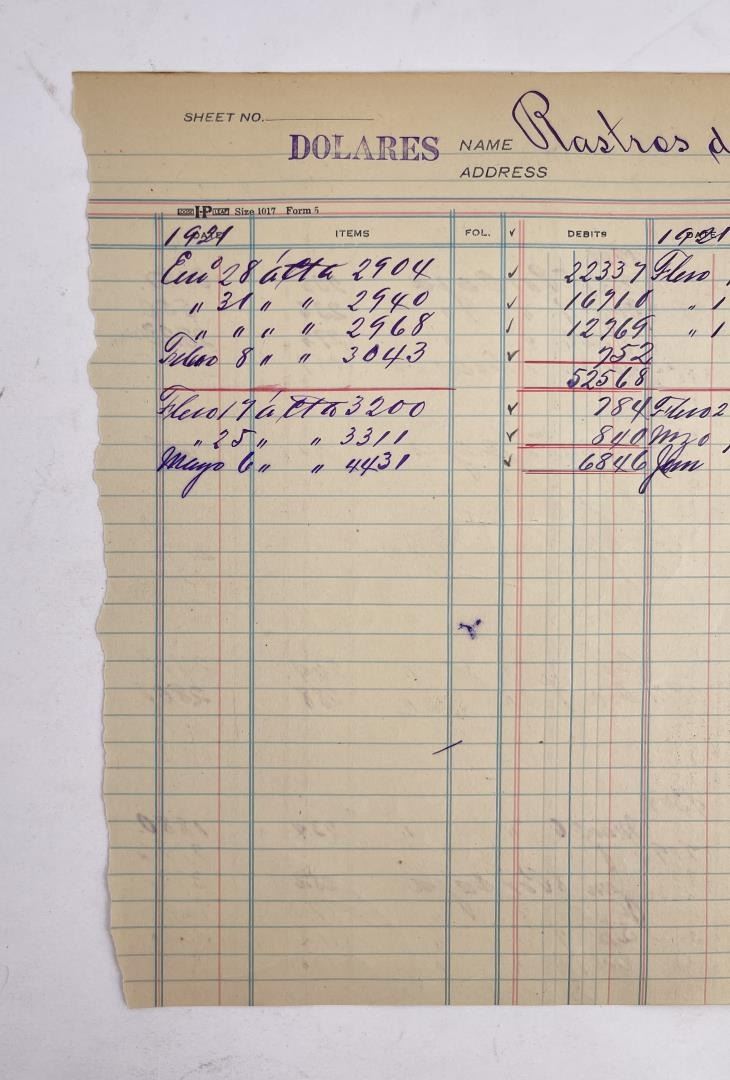 SHEET NO.
DOLARES NAME Rastros d
ADDRESS
LOOSE I-P LEAF Size 1017 Form 5
1921 DATE ITEMS FOL. ✓ DEBITS 1921 DATE
Enº 28 á cta 2904 ✓ 22337 Fbro
" 31 " " 2940 ✓ 16710 " 1
" " " " 2968 ✓ 12769 " 1
Fbro 8 " " 3043 ✓ 752
52568
Fbro 17 á cta 3200 ✓ 784 Fbro 2
" 25 " " 3311 ✓ 840 Mzo
Mayo 6 " " 4431 ✓ 6846